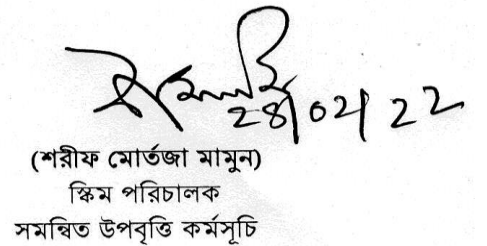 28/02/22
(শরীফ মোর্তজা মামুন)
স্কিম পরিচালক
সমন্বিত উপবৃত্তি কর্মসূচি